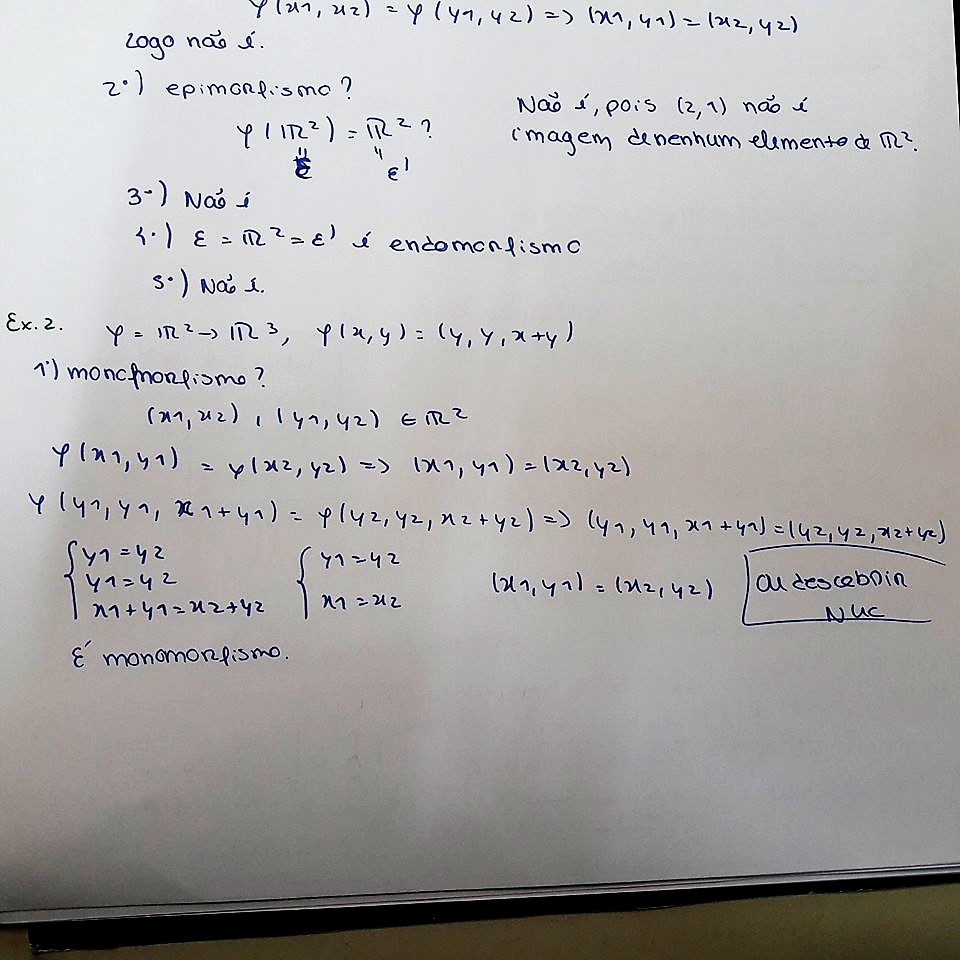 φ(x1, x2) = φ(y1, y2) => (x1, y1) = (x2, y2)
Logo não é.
2º) epimorfismo?
φ(ℝ²) = ℝ²?
Não é, pois (2,1) não é
imagem de nenhum elemento de ℝ².
" "
ε ε'
3º) Não é
4º) ε = ℝ² = ε' é endomorfismo
5º) Não é.
Ex. 2. φ = ℝ² → ℝ³, φ(x, y) = (y, y, x+y)
1º) monomorfismo?
(x1, x2), (y1, y2) ∈ ℝ²
φ(x1, y1) = φ(x2, y2) => (x1, y1) = (x2, y2)
φ(y1, y1, x1+y1) = φ(y2, y2, x2+y2) => (y1, y1, x1+y1) = (y2, y2, x2+y2)
{ y1 = y2 { y1 = y2
y1 = y2 (x1, y1) = (x2, y2) ou descobrir
x1+y1 = x2+y2 x1 = x2 NUC
É monomorfismo.